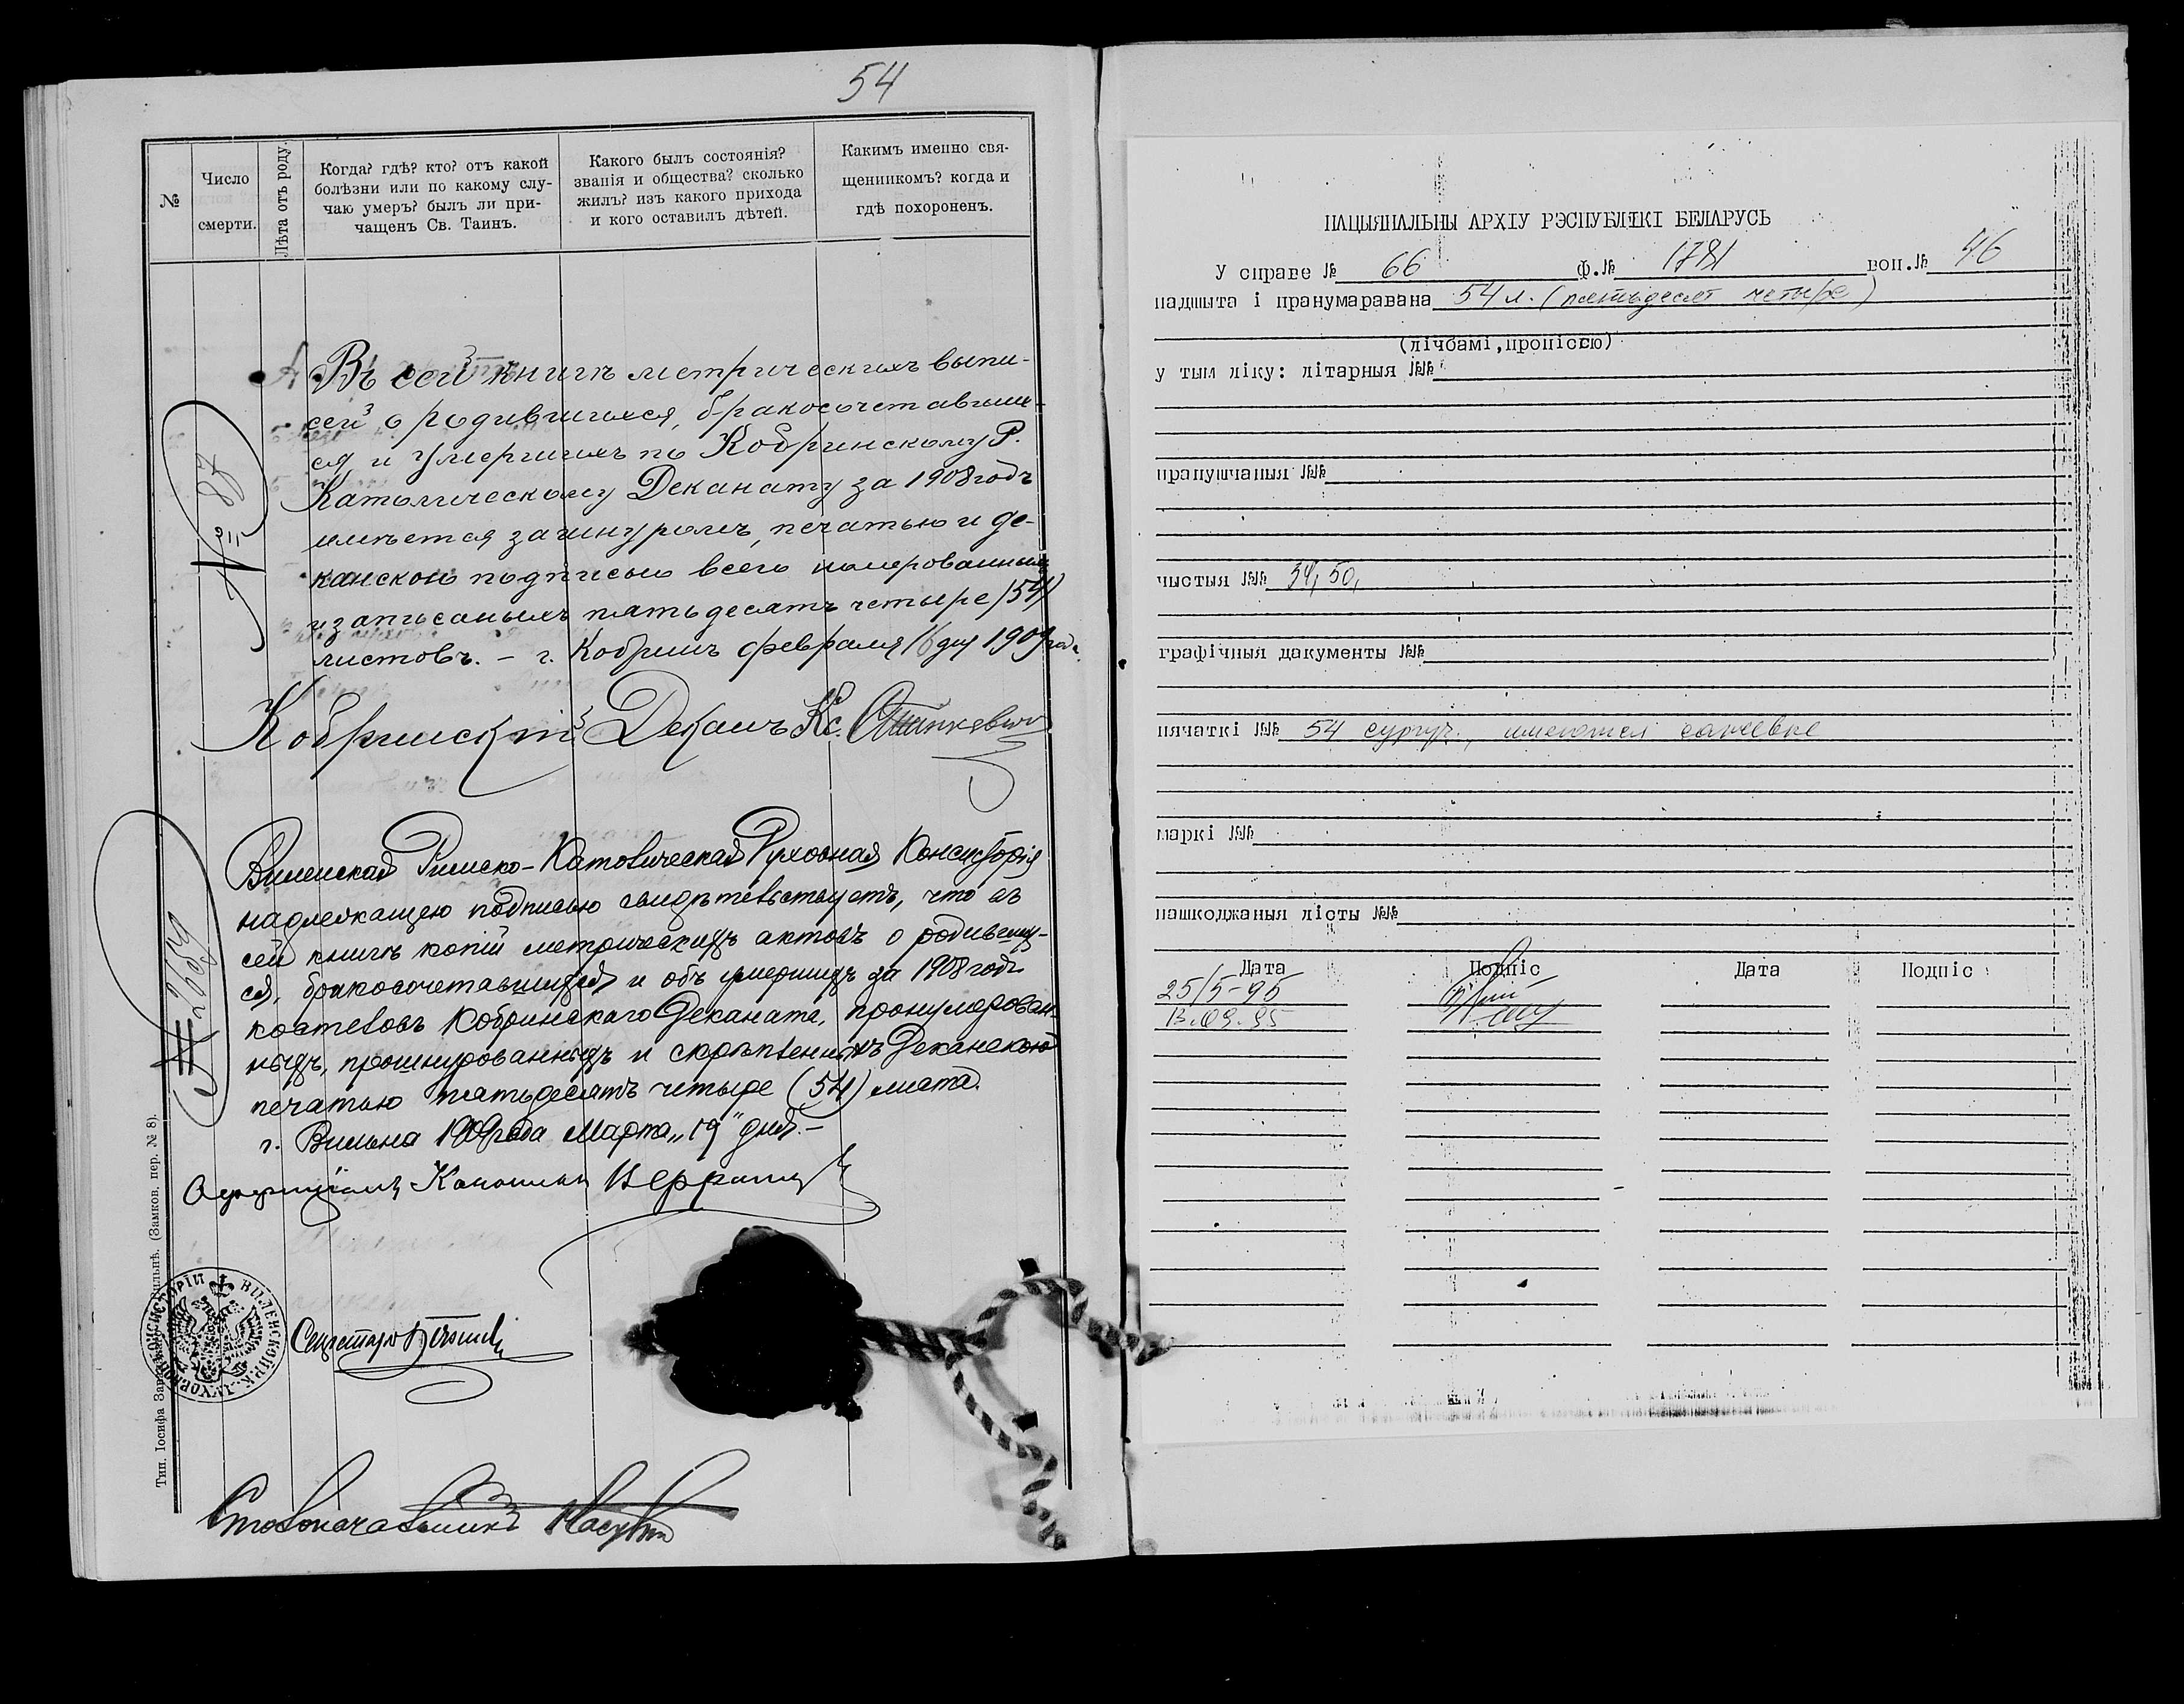 54
№
Число
смерти.
Лѣта отъ роду.
Когда? гдѣ? кто? отъ какой
болѣзни или по какому слу-
чаю умеръ? былъ ли при-
чащенъ Св. Таинъ.
Какого былъ состоянія?
званія и общества? сколько
жилъ? изъ какого прихода
и кого оставилъ дѣтей.
Какимъ именно свя-
щенникомъ? когда и
гдѣ похороненъ.
Въ сей книгѣ метрическихъ выпи-
сей о родившихся, бракосочетавших-
ся и умершихъ по Кобринскому Р.
Католическому Деканату за 1908 годъ
имѣется за шнуромъ, печатью и де-
канскою подписью всего номерованныхъ
и записаныхъ пятьдесятъ четыре /54/
листовъ. – г. Кобринъ февраля 16 дня 1909 года.
№ 87
Кобринскій Деканъ Кс. Станкевичъ
Виленская Римско-Католическая Духовная Консисторія
надлежащею подписью свидѣтельствуетъ, что въ
сей книгѣ копій метрическихъ актовъ о родивших-
ся, бракосочетавшихся и объ умершихъ за 1908 годъ
костеловъ Кобринскаго Деканата, пронумерован-
ныхъ, прошнурованныхъ и скрѣпленныхъ Деканскою
печатью пятьдесятъ четыре (54) листа.
г. Вильна 1909 года Марта „19" дня. –
№ 2659
Оффиціалъ Каноникъ
Секретарь
Столоначальникъ
ВИЛЕНСКОЙ Р.-К. ДУХОВНОЙ КОНСИСТОРІИ
Тип. Іосифа Завадзкаго въ Вильнѣ. (Замков. пер. № 8).
НАЦЫЯНАЛЬНЫ АРХІУ РЭСПУБЛІКІ БЕЛАРУСЬ
У справе № 66 Ф.№ 1781 воп.№ 46
падшыта і пранумаравана 54 л. (пятьдесят четыре)
(лічбамі,пропіссю)
у тым ліку: літарныя №№
прапушчаныя №№
чыстыя №№ 34, 50,
графічныя дакументы №№
пячаткі №№ 54 сургуч., имеются
маркі №№
пашкоджаныя лісты №№
Дата Подпіс Дата Подпіс
25/5-95
13.09.95